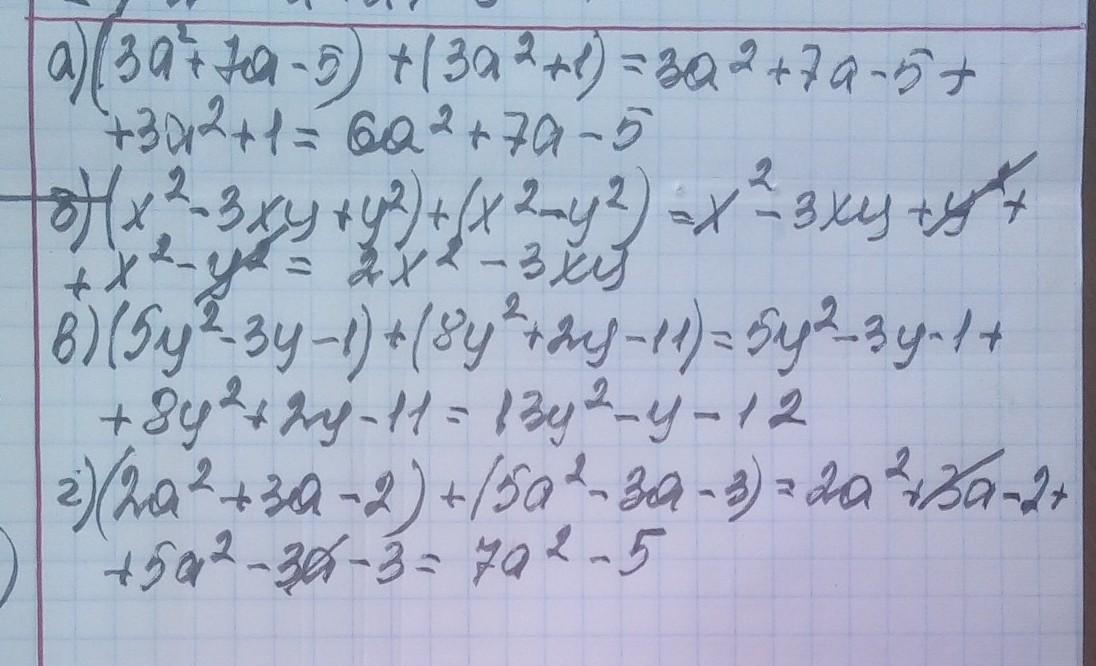 а) (3a²+7a-5) + (3a²+1) = 3a²+7a-5+
+3a²+1= 6a²+7a-5
б) (x²-3xy+y²)+(x²-y²) =x²-3xy+y²+
+x²-y²= 2x²-3xy
в) (5y²-3y-1)+(8y²+2y-11)=5y²-3y-1+
+8y²+2y-11= 13y²-y-12
г) (2a²+3a-2)+(5a²-3a-3)=2a²+3a-2+
+5a²-3a-3= 7a²-5